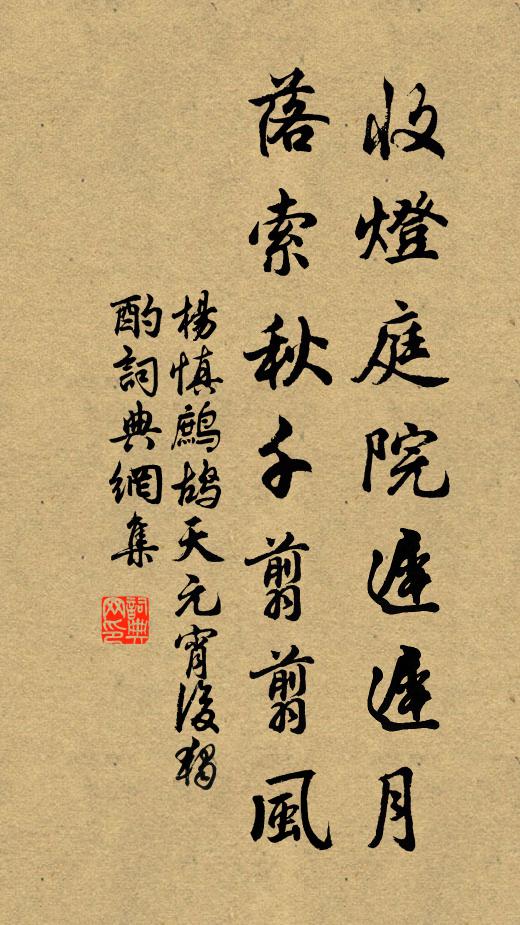 收燈庭院遲遲月
落索秋千翦翦風
楊慎鷓鴣天元宵後獨
酌詞典網集
詞典
网印